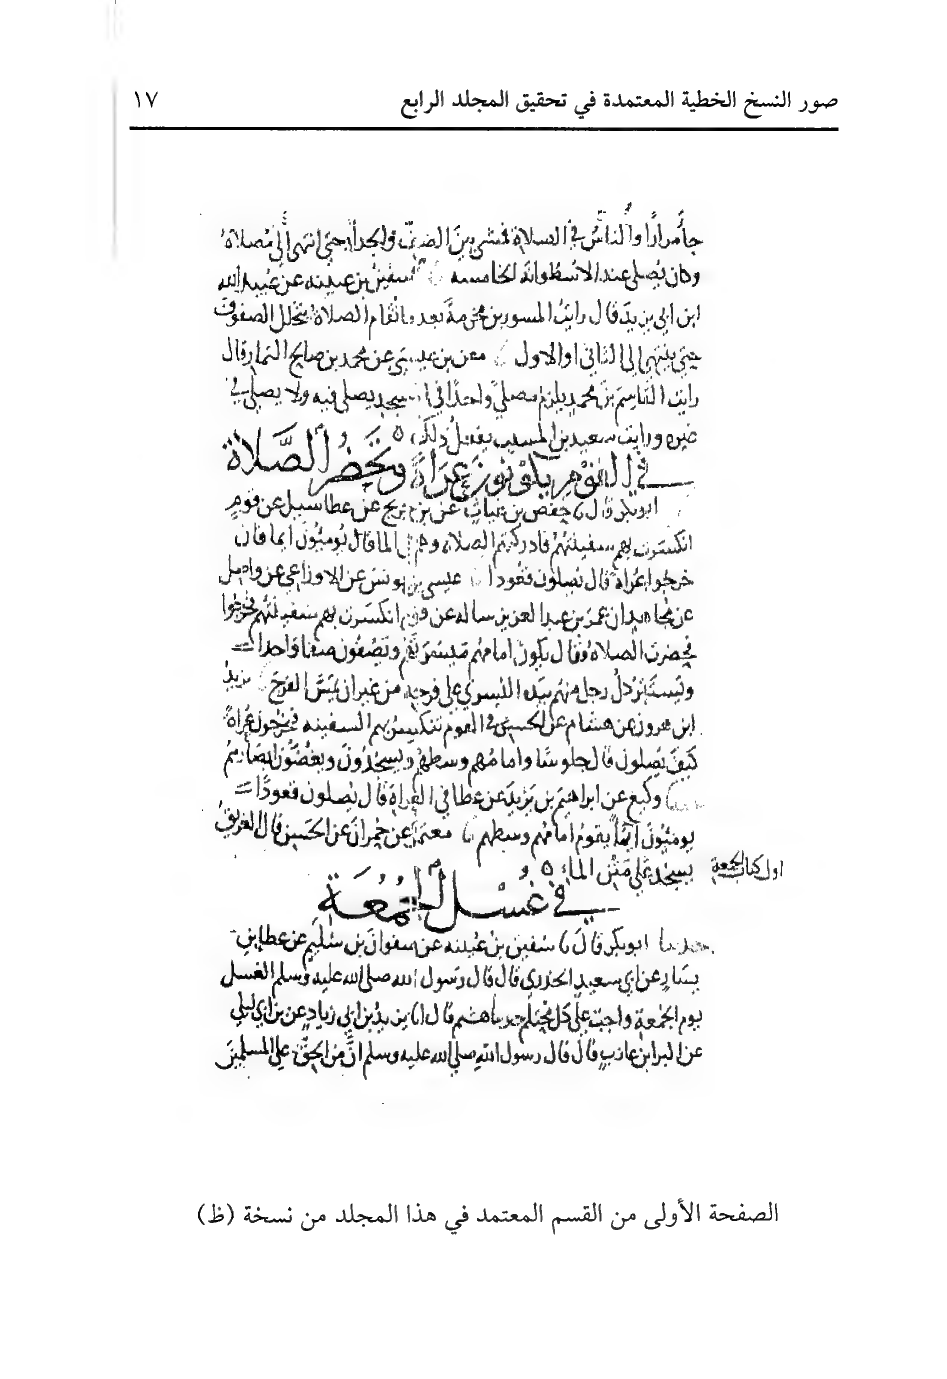 صور النسخ الخطية المعتمدة في تحقيق المجلد الرابع ١٧
جا مرارا والناس في الصلاة فمشى بين الصف والجدار حتى انتهى إلى مصلاه
وكان يصلي عند الاسطوانة الخامسة سفين بن عيينه عن عبيد الله
ابن ابي يزيد قال رايت المسور بن مخرمة بعد ما تقام الصلاة يتخلل الصفوف
حتى ينتهي إلى الثاني او الاول معن بن عيسى عن محمد بن صالح التمار قال
رايت القاسم بن محمد يلزم مصلى واحدا في المسجد يصلي فيه ولا يصلي في
غيره ورايت سعيد بن المسيب يفعل ذلك
في القوم يكونون عراة وتحضر الصلاة
ابو بكر قال حفص بن غياث عن بن جريج عن عطا سيل عن قوم
انكسرت بهم سفينتهم فادركتهم الصلاة وهم في الما قال يومئون ايما فان
خرجوا عراة قال يصلون قعودا عيسى بن يونس عن الاوزاعي عن واصل
عن مجاهد ان عمر بن عبد العزيز ساله عن قوم انكسرت بهم سفينتهم فخرجوا
فحضرت الصلاة فقال يكون امامهم ميسرتهم ويصفون صفا واحدا
ويستتر كل رجل منهم بيده اليسرى على فرجه من غير ان يمس الفرج يزيد
ابن هرون عن هشام عن الحسن في القوم تنكسر بهم السفينه فيخرجون عراة
كيف يصلون قال جلوسا وامامهم وسطهم ويسجدون ويغضون ابصارهم
وكيع عن ابراهيم بن يزيد عن عطا في العراة قال يصلون قعودا
يومئون ايما يقوم امامهم وسطهم معتمر عن عن الحسن قال الغريق
يسجد على متن الماء
اول كتاب الجمعة
في غسل الجمعة
حدثنا ابو بكر قال سفين بن عيينه عن صفوان بن سليم عن عطا بن
يسار عن ابي سعيد الخدري قال قال رسول الله صلى الله عليه وسلم الغسل
يوم الجمعة واجب على كل محتلم حدثنا هشيم قال يزيد بن ابي زياد عن بن ابي ليلى
عن البرا بن عازب قال قال رسول الله صلى الله عليه وسلم ان من الحق على المسلمين
الصفحة الأولى من القسم المعتمد في هذا المجلد من نسخة (ظ)